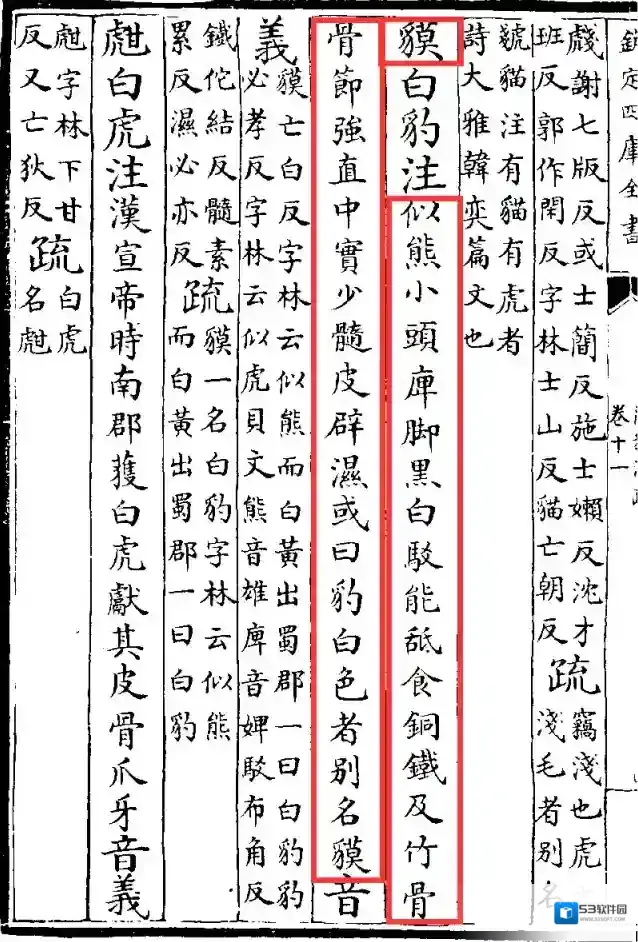 欽定四庫全書
卷十一
虥謝七版反或士簡反施士嬾反沈才
班反郭作閑反字林士山反貓亡朝反
疏
竊淺也虎
淺毛者别名
號貓注有貓有虎者
詩大雅韓奕篇文也
貘白豹注似熊小頭庳脚黑白駁能舐食銅鐵及竹骨
骨節強直中實少髓皮辟濕或曰豹白色者别名貘音
義
貘亡白反字林云似熊而白黃出蜀郡一曰白豹豹
必孝反字林云似虎貝文熊音雄庳音婢駁布角反
鐵佗結反髓素
累反濕必亦反
疏
貘一名白豹字林云似熊
而白黃出蜀郡一曰白豹
甝白虎注漢宣帝時南郡獲白虎獻其皮骨爪牙音義
甝字林下甘
反又亡狄反
疏
白虎
名甝
53软件园